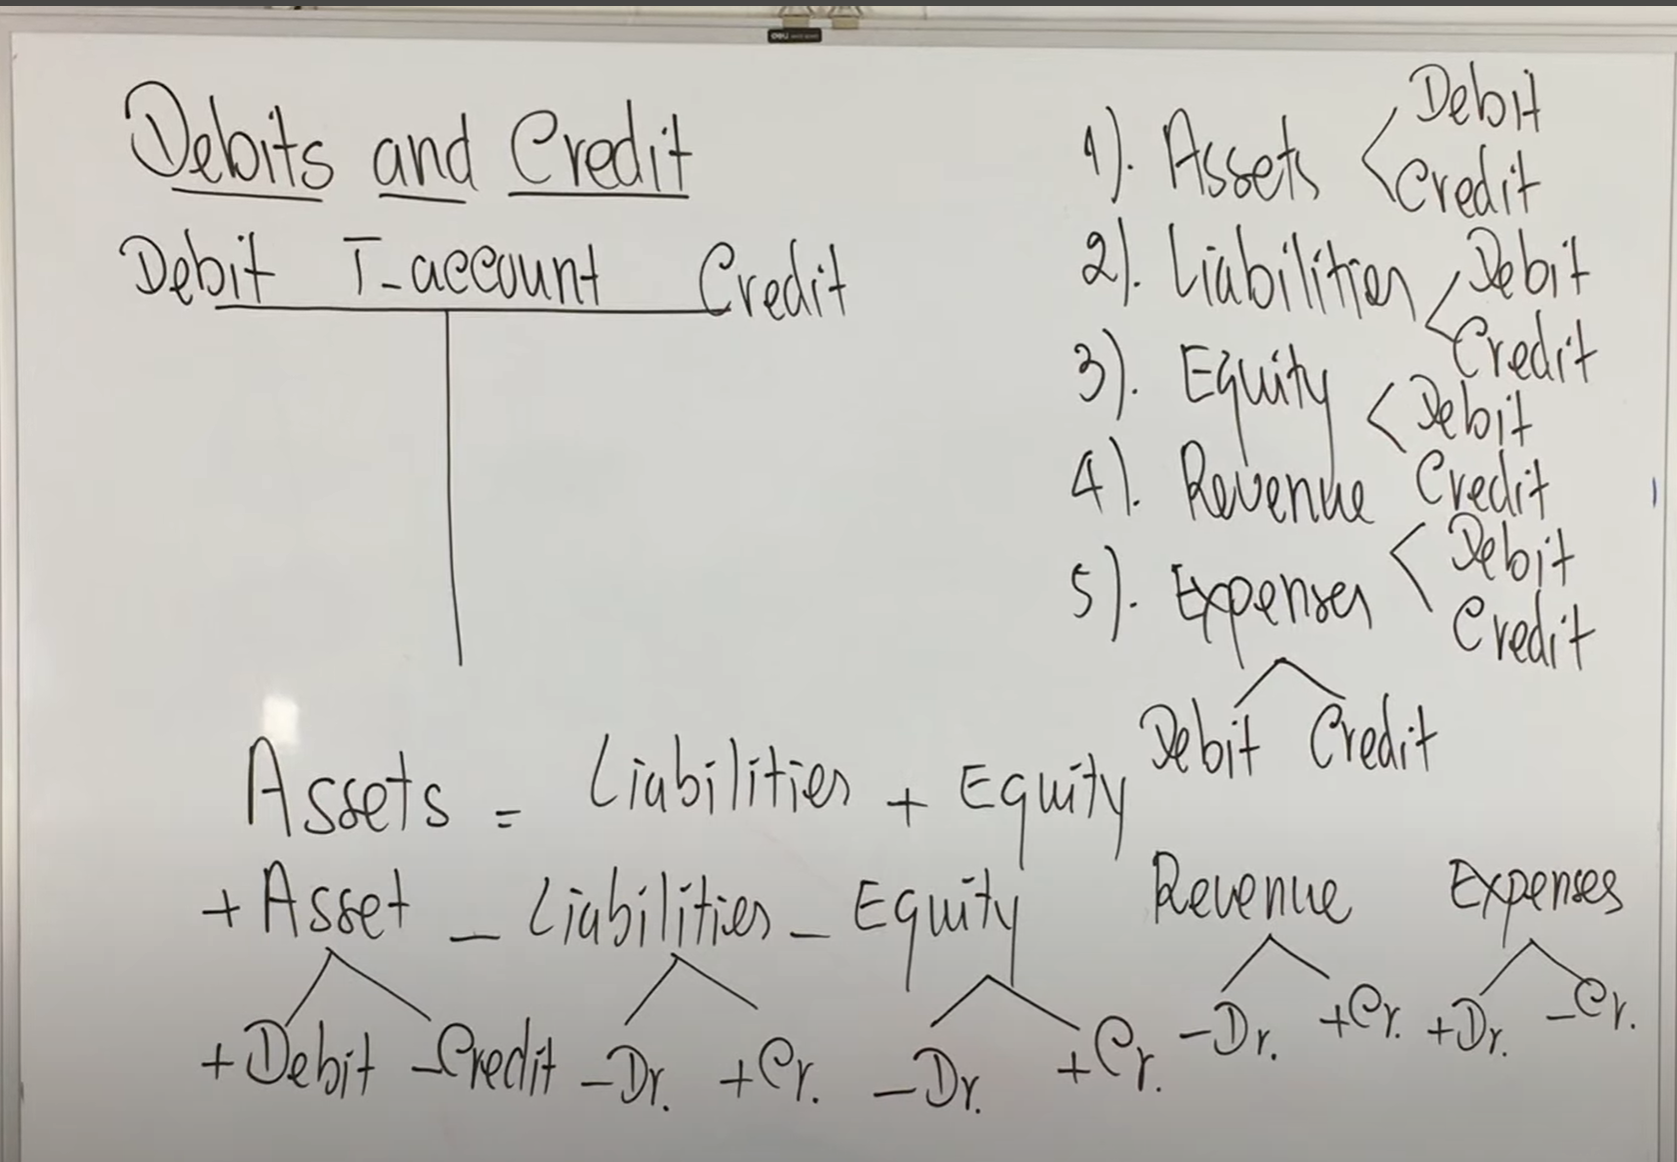 Debits and Credit
Debit T-account Credit
1). Assets < Debit
Credit
2). Liabilities < Debit
Credit
3). Equity < Debit
4). Revenue Credit
< Debit
5). Expenses Credit
Debit Credit
Assets = Liabilities + Equity
+ Asset - Liabilities - Equity Revenue Expenses
+ Debit - Credit - Dr. + Cr. - Dr. + Cr. - Dr. + Cr. + Dr. - Cr.